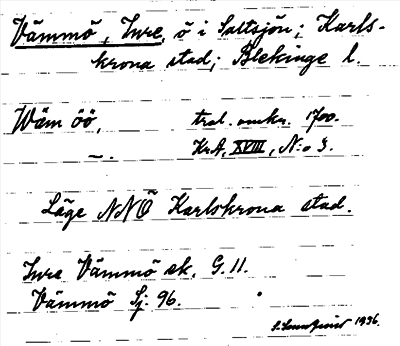 Vämmö, Inre, ö i Saltsjön; Karls-
krona stad; Blekinge l.
Wäm öö, trol. omkr. 1700.
—. KrA, XVIII, N:o 3.
Läge NNÖ Karlskrona stad.
Inre Vämmö ek. G. 11.
Vämmö Sj. 96.
1936.